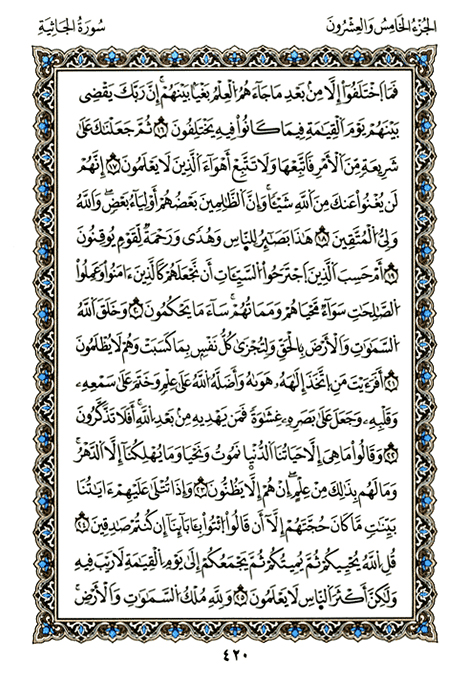 الجُزْءُ الخَامِسُ وَالعِشْرُونَ
سُورَةُ الجَاثِيَةِ
فَمَا اَخْتَلَفُوٓاْ إِلَّا مِنۢ بَعْدِ مَا جَآءَهُمُ الْعِلْمُ بَغْيَاۢ بَيْنَهُمْۥٓ إِنَّ رَبَّكَ يَقْضِى
بَيْنَهُمْ يَوْمَ الْقِيَٰمَةِ فِيمَا كَانُواْ فِيهِ يَخْتَلِفُونَ ١٦ ثُمَّ جَعَلْنَٰكَ عَلَىٰ
شَرِيعَةٍ مِّنَ الْأَمْرِ فَاتَّبِعْهَا وَلَا تَتَّبِعْ أَهْوَآءَ الَّذِينَ لَا يَعْلَمُونَ ١٧ إِنَّهُمْ
لَن يُغْنُواْ عَنكَ مِنَ اللَّهِ شَيْـًٔا وَإِنَّ الظَّٰلِمِينَ بَعْضُهُمْۥٓ أَوْلِيَآءُ بَعْضٍ وَاللَّهُ
وَلِىُّ الْمُتَّقِينَ ١٨ هَٰذَا بَصَٰٓئِرُ لِلنَّاسِ وَهُدًى وَرَحْمَةٌ لِّقَوْمٍ يُوقِنُونَ
١٩ أَمْ حَسِبَ الَّذِينَ اَجْتَرَحُواْ السَّيِّـَٔاتِ أَن نَّجْعَلَهُمْ كَالَّذِينَ ءَامَنُواْ وَعَمِلُواْ
الصَّٰلِحَٰتِ سَوَآءٌ مَّحْيَاهُمْ وَمَمَاتُهُمْ سَآءَ مَا يَحْكُمُونَ ٢٠ وَخَلَقَ اللَّهُ
السَّمَٰوَٰتِ وَالْأَرْضَ بِالْحَقِّ وَلِتُجْزَىٰ كُلُّ نَفْسٍۭ بِمَا كَسَبَتْ وَهُمْ لَا يُظْلَمُونَ
٢١ أَفَرَءَيْتَ مَنِ اِتَّخَذَ إِلَٰهَهُۥ هَوَىٰهُ وَأَضَلَّهُ اللَّهُ عَلَىٰ عِلْمٍ وَخَتَمَ عَلَىٰ سَمْعِهِۦ
وَقَلْبِهِۦ وَجَعَلَ عَلَىٰ بَصَرِهِۦ غِشَٰوَةً فَمَن يَهْدِيهِ مِنۢ بَعْدِ اللَّهِ أَفَلَا تَذَّكَّرُونَ
٢٢ وَقَالُواْ مَا هِىَ إِلَّا حَيَاتُنَا الدُّنْيَا نَمُوتُ وَنَحْيَا وَمَا يُهْلِكُنَآ إِلَّا الدَّهْرُ
وَمَا لَهُم بِذَٰلِكَ مِنْ عِلْمٍ إِنْ هُمْۥٓ إِلَّا يَظُنُّونَ ٢٣ وَإِذَا تُتْلَىٰ عَلَيْهِمْۥٓ ءَايَٰتُنَا
بَيِّنَٰتٍ مَّا كَانَ حُجَّتَهُمْۥٓ إِلَّآ أَن قَالُواْ اَئْتُواْ بِـَٔابَآئِنَآ إِن كُنتُمْ صَٰدِقِينَ ٢٤
قُلِ اللَّهُ يُحْيِيكُمْ ثُمَّ يُمِيتُكُمْ ثُمَّ يَجْمَعُكُمْۥٓ إِلَىٰ يَوْمِ الْقِيَٰمَةِ لَا رَيْبَ فِيهِ
وَلَٰكِنَّ أَكْثَرَ النَّاسِ لَا يَعْلَمُونَ ٢٥ وَلِلَّهِ مُلْكُ السَّمَٰوَٰتِ وَالْأَرْضِ
٤٢٠